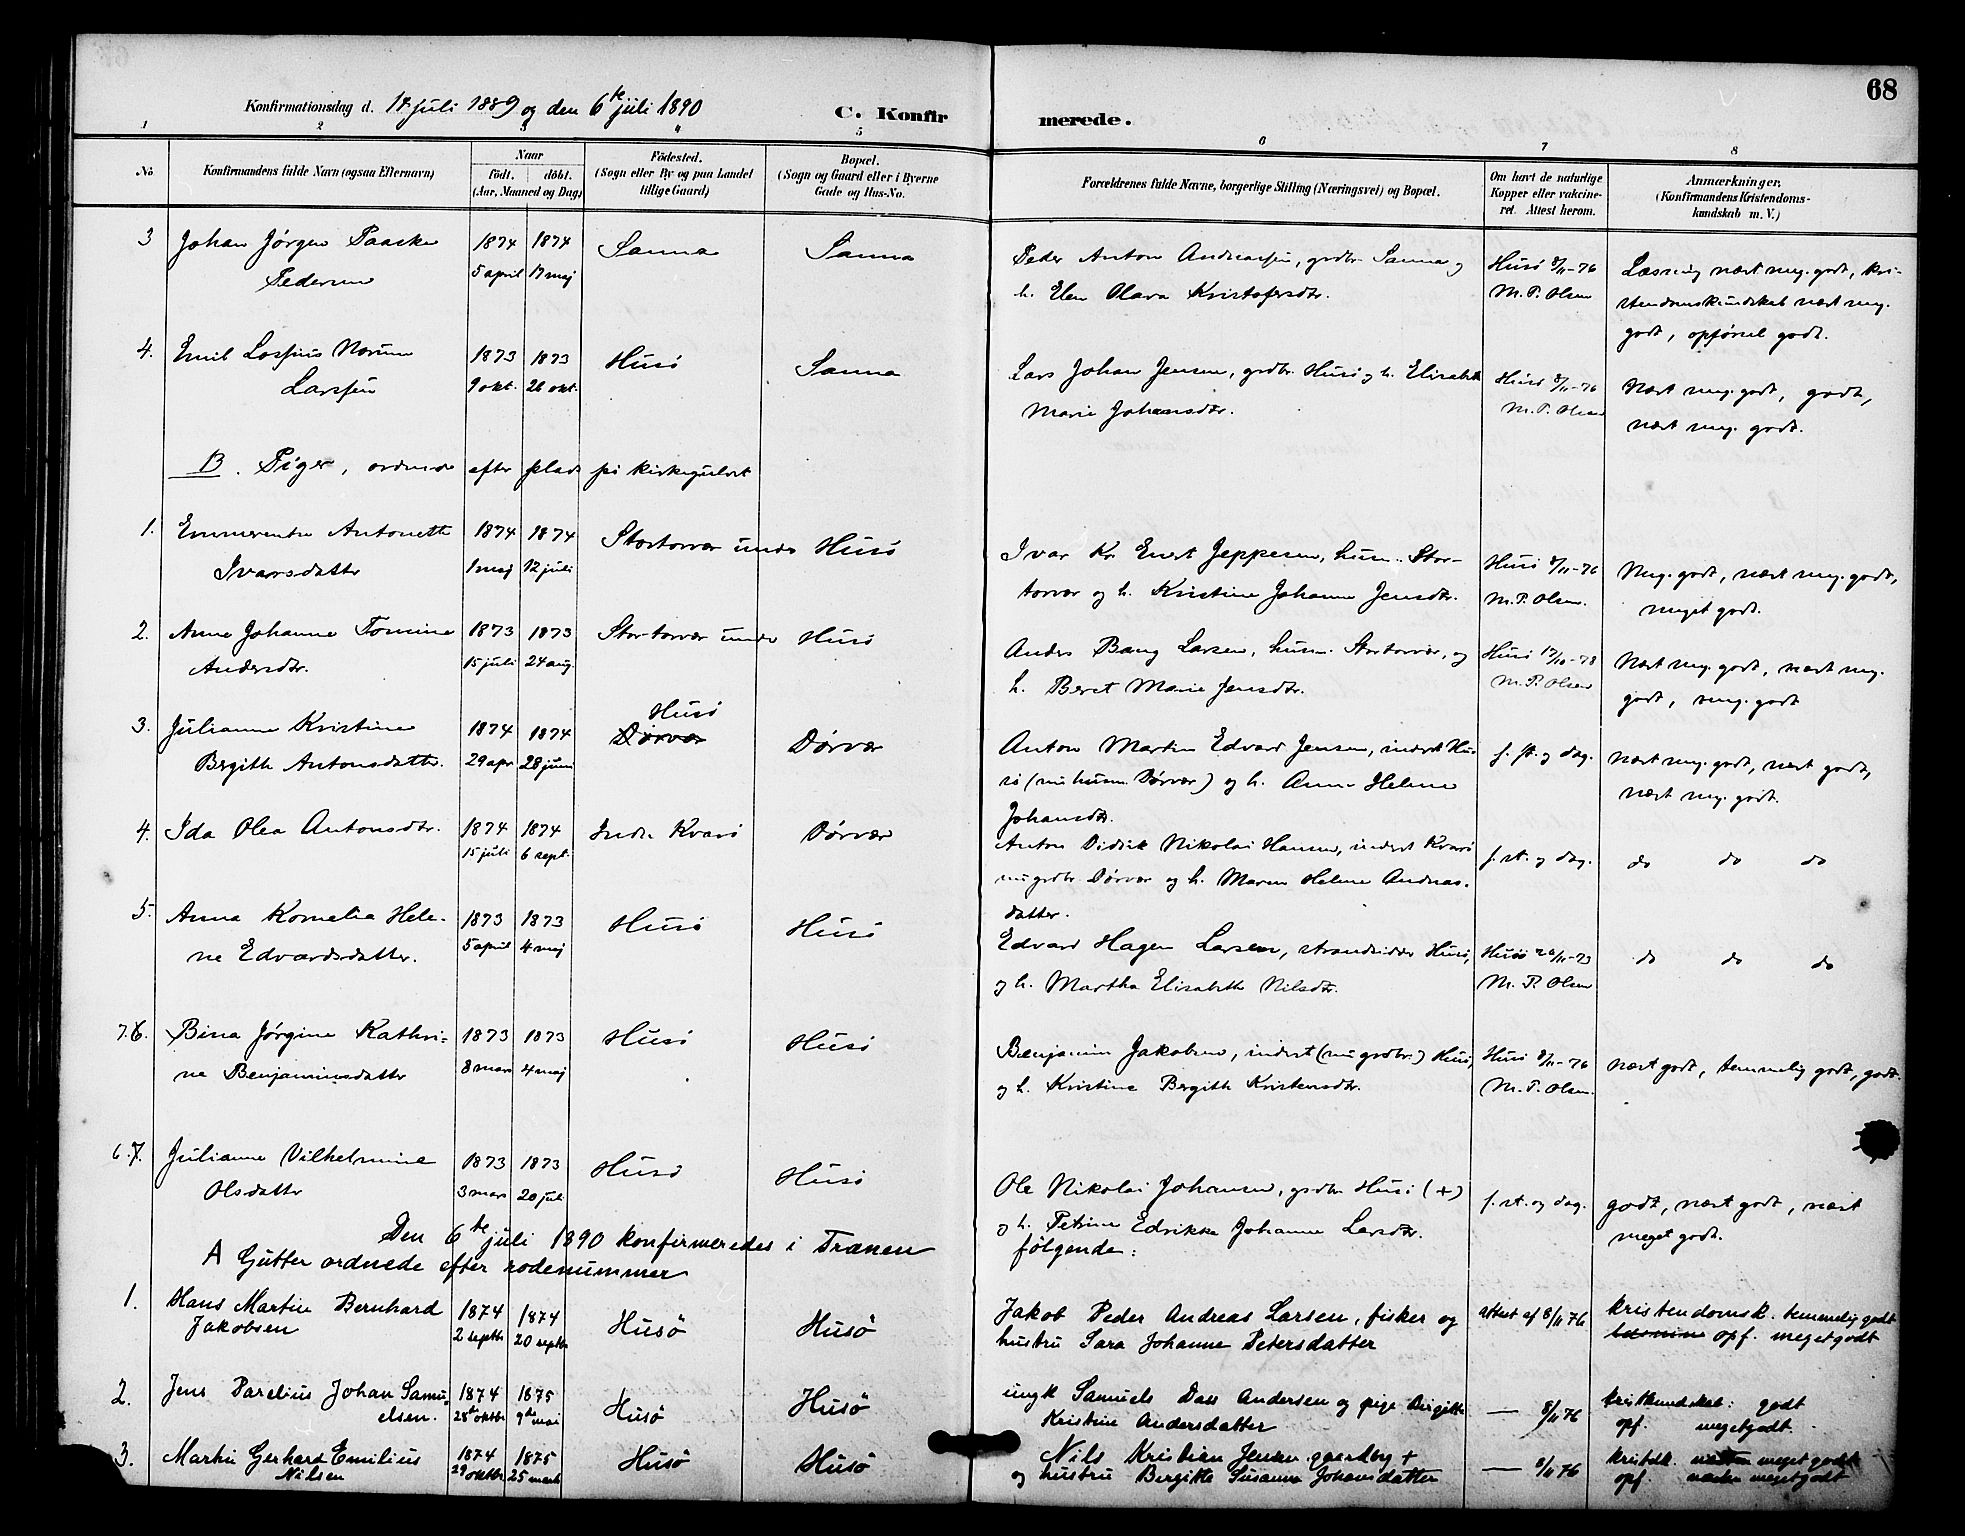 68
Konfirmationsdag d. 14 juli 1889 og den 6te juli 1890
C. Konfirmerede.
1 2 3 4 5 6 7 8
No
Konfirmandens fulde Navn (ogsaa Efternavn)
Naar
födt. döbt.
(Aar, Maaned og Dag)
Födested.
(Sogn eller By og paa Landet
tillige Gaard)
Bopæl.
(Sogn og Gaard eller i Byerne
Gade og Hus-No.
Forældrenes fulde Navne, borgerlige Stilling (Næringsvei) og Bopæl.
Om havt de naturlige
Kopper eller vakcine-
ret. Attest herom.
Anmærkninger,
(Konfirmandens Kristendoms-
kundskab m. V.)
3 Johan Jørgen Paaske 1874 1874 Sanna Sanna
Pedersen 5 april 17 maj
Peder Anton Andreassen, grdbr. Sanna og
h. Elen Olava Kristofersdtr.
Husö 8/11-76
M. P. Olsen
Læsning nært meg. godt, kri-
stendomskundskab nært meg.
godt, opförsel godt.
4. Emil Larsen 1873 1873 Husö Sanna
9 okt. 26 okt.
Lars Johan Jensen, grdbr. Husö og h. Elisabeth
Marie Johansdtr.
Husö 8/11-76
M. P. Olsen
Nært meg. godt, godt,
nært meg. godt.
B. Piger, ordnede efter plads på kirkegulvet
1. Emmerentse Antonette 1874 1874 Stortorvær under Husö
Ivarsdatter 1 maj 12 juli
Ivar Kr. Enert Jeppesen, husm. Stor-
torvær og h. Kristine Johanna Jensdtr.
Husö 8/11-76
M. P. Olsen.
Meg. godt, nært meg. godt,
meget godt.
2. Anna Johanne Tomine 1873 1873 Stortorvær under Husö
Andersdtr. 15 juli 24 aug.
Anders Bang Larsen, husm. Stortorvær, og
h. Beret Marie Jensdtr.
Husö 17/10-78
M. P. Olsen
Nært meg. godt, nært meg.
godt, meg. godt
3. Julianne Kristine 1874 1874 Husö Dörvær Dörvær
Bergith Antonsdatter. 29 apr 28 juni
Anton Martin Edvard Jensen, inderst Hu-
sö (nu husm. Dörvær) og h. Anne Helene
Johansdtr.
f. st. og dag.
nært meg. godt, nært godt,
nært meg. godt.
4. Ida Olea Antonsdtr. 1874 1874 Indr. Kvarö Dörvær
15 juli 6 sept.
Anton Didrik Nikolai Hansen, inderst Kvarö
nu grdbr. Dörvær og h. Maren Helene Andreas-
datter.
f. st. og dag.
do do do
5. Anna Kornelia Hele- 1873 1873 Husö Husö
ne Edvardsdatter. 5 april 4 maj
Edvard Hagen Larsen, strandsidder Husö,
og h. Martha Elisabeth Nilsdtr.
Husö 20/11-73
M. P. Olsen
do do do
7.6. Bina Jørgine Kathri- 1873 1873 Husö Husö
ne Benjaminsdatter 8 mars 4 maj
Benjamin Jakobsen, inderst (nu grdbr.) Husö,
og h. Kristine Bergith Kristensdtr.
Husö 8/11-76
M. P. Olsen.
nært godt, temmelig godt, godt.
6.7. Julianne Vilhelmine 1873 1873 Husö Husö
Olsdatter 3 mars 20 juli
Ole Nikolai Johansen, grdbr. Husö (+)
og h. Petrine Edrikke Johanna Larsdtr.
f. st. og dag.
godt, nært godt, nært
meget godt.
Den 6te juli 1890 konfirmeredes i Trænen følgende:
A Gutter ordnede efter rodenummer
1. Hans Martin Bernhard 1874 1874 Husö Husö
Jakobsen 2 septbr 20 septbr
Jakob Peder Andreas Larsen, fisker og
hustru Sara Johanne Petersdatter
attest af 8/11 76
kristendomsk. temmelig godt
læsning opf. meget godt
2. Jens Parelius Johan Samu- 1874 1875 Husö Husö
elsen. 28de oktbr 9de mai
ungk Samuels Dass Andersen og pige Birgitte
Kristine Andersdatter
— 8/11 76
kristkundskab: godt
opf. meget godt.
3. Martin Gerhard Emilius 1874 1875 Husö Husö
Nilsen 29 oktbr 25 marts
Nils Kristian Jensen gaardbr +
og hustru Bergitte Susanna Johansdatter
— 8/11 76
kristdk. meget godt
opf. meget godt